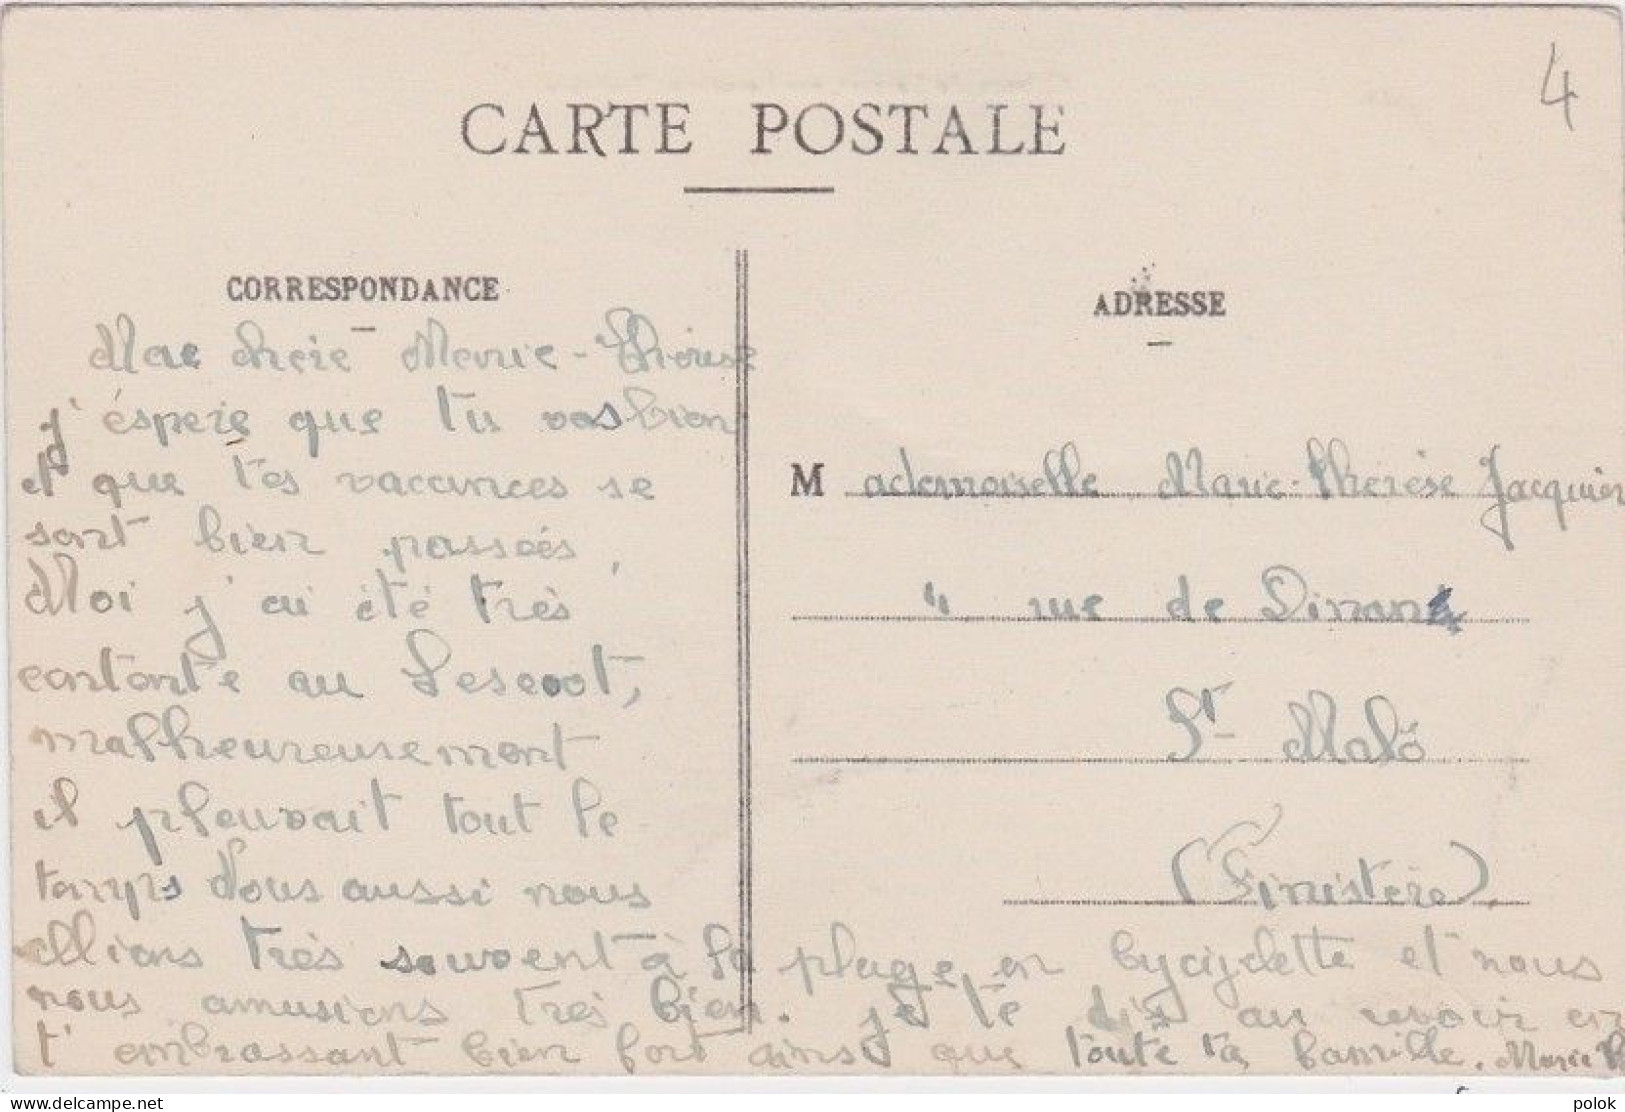 4
CARTE POSTALE
CORRESPONDANCE
Mae cheie Marie-Thérèse
j'éspere que tu vas bien
et que tes vacances se
sont bien passées,
Moi j'ai été très
contente au
malheureusement
il pleuvait tout le
temps Vous aussi nous
allions très souvent à la plage, en bycigclette et nous
nous amusions très bien. je te dis au revoir en
t'embrassant bien fort ainsi que toute ta famille. Marie
ADRESSE
Mademoiselle Marie-Thérèse Jacquier
" rue de Dinan
St Malô
(Finistère).
delcampe.net
polok